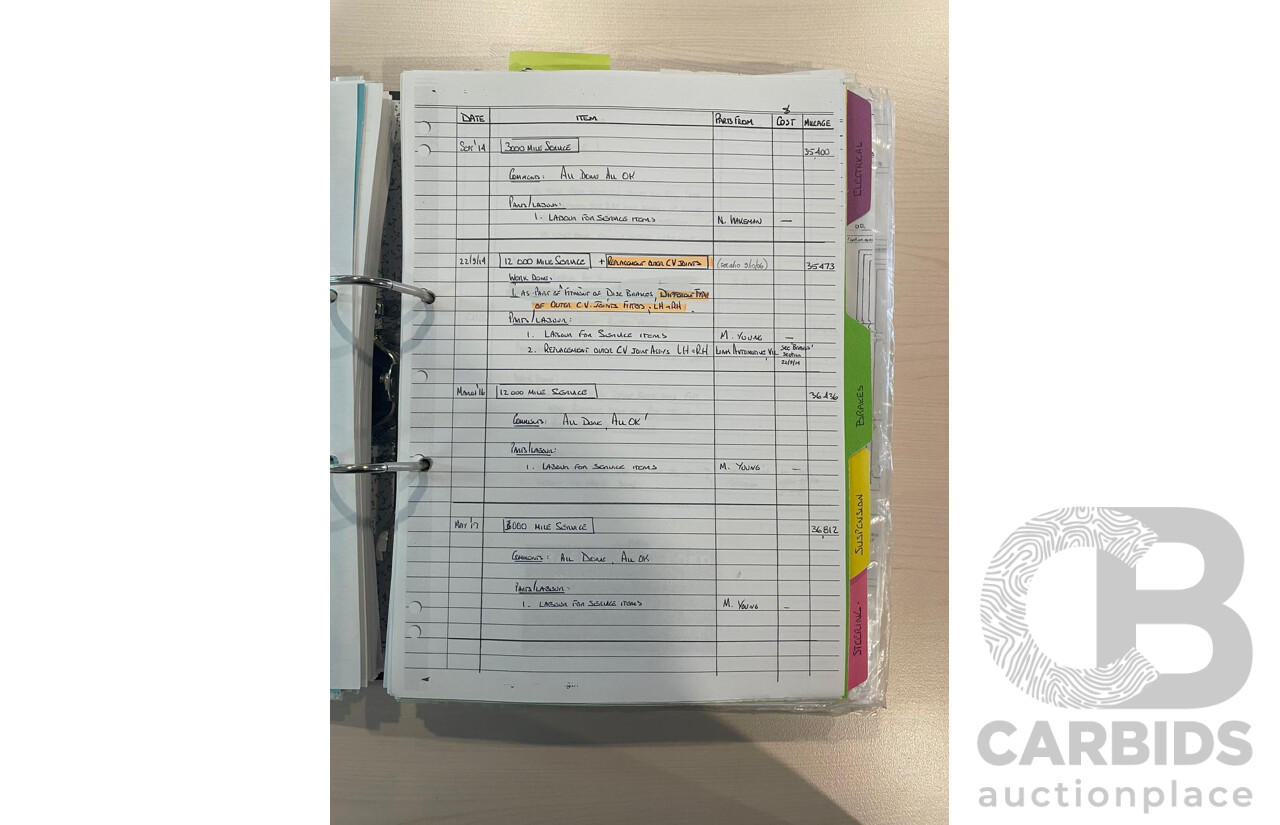 $
DATE ITEM PARTS FROM COST MILEAGE
SEPT '14 3000 MILE SERVICE 35,400
COMMENTS: ALL DONE ALL OK
PARTS/LABOUR:
1. LABOUR FOR SERVICE ITEMS N. WAKEMAN —
22/9/14 12 000 MILE SERVICE + REPLACEMENT OUTER CV JOINTS 35473
WORK DONE:
1. AS PART OF FITMENT OF DISC BRAKES, DIFFERENT TYPE
OF OUTER C.V. JOINTS FITTED, LH + RH.
PARTS/LABOUR:
1. LABOUR FOR SERVICE ITEMS M. YOUNG —
2. REPLACEMENT OUTER CV JOINT ASSYS LH + RH LINK AUTOMOTIVE, VIC SEE 'BRAKES'
SECTION
22/9/14
MARCH '16 12 000 MILE SERVICE 36,436
COMMENTS: ALL DONE, ALL OK
PARTS/LABOUR:
1. LABOUR FOR SERVICE ITEMS M. YOUNG —
MAY '17 3000 MILE SERVICE 36,812
COMMENTS: ALL DONE, ALL OK
PARTS/LABOUR:
1. LABOUR FOR SERVICE ITEMS M. YOUNG —
ELECTRICAL
BRAKES
SUSPENSION
STEERING
CB
CARBIDS
auctionplace